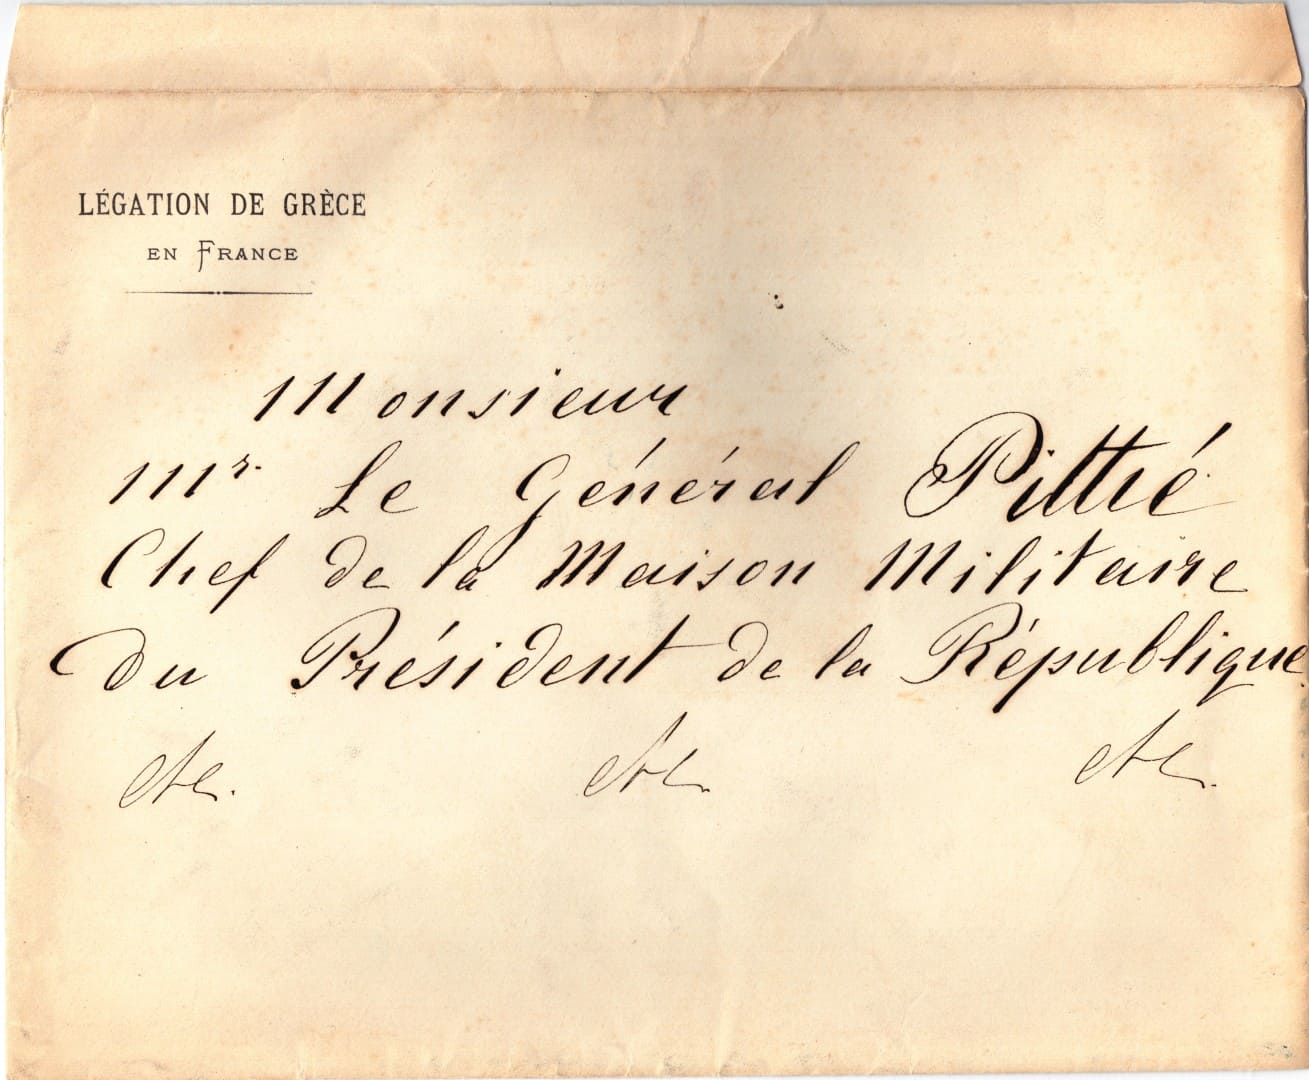 LÉGATION DE GRÈCE
EN FRANCE
Monsieur
Mr. Le Général Pittié
Chef de la Maison Militaire
Du Président de la République.
etc. etc. etc.